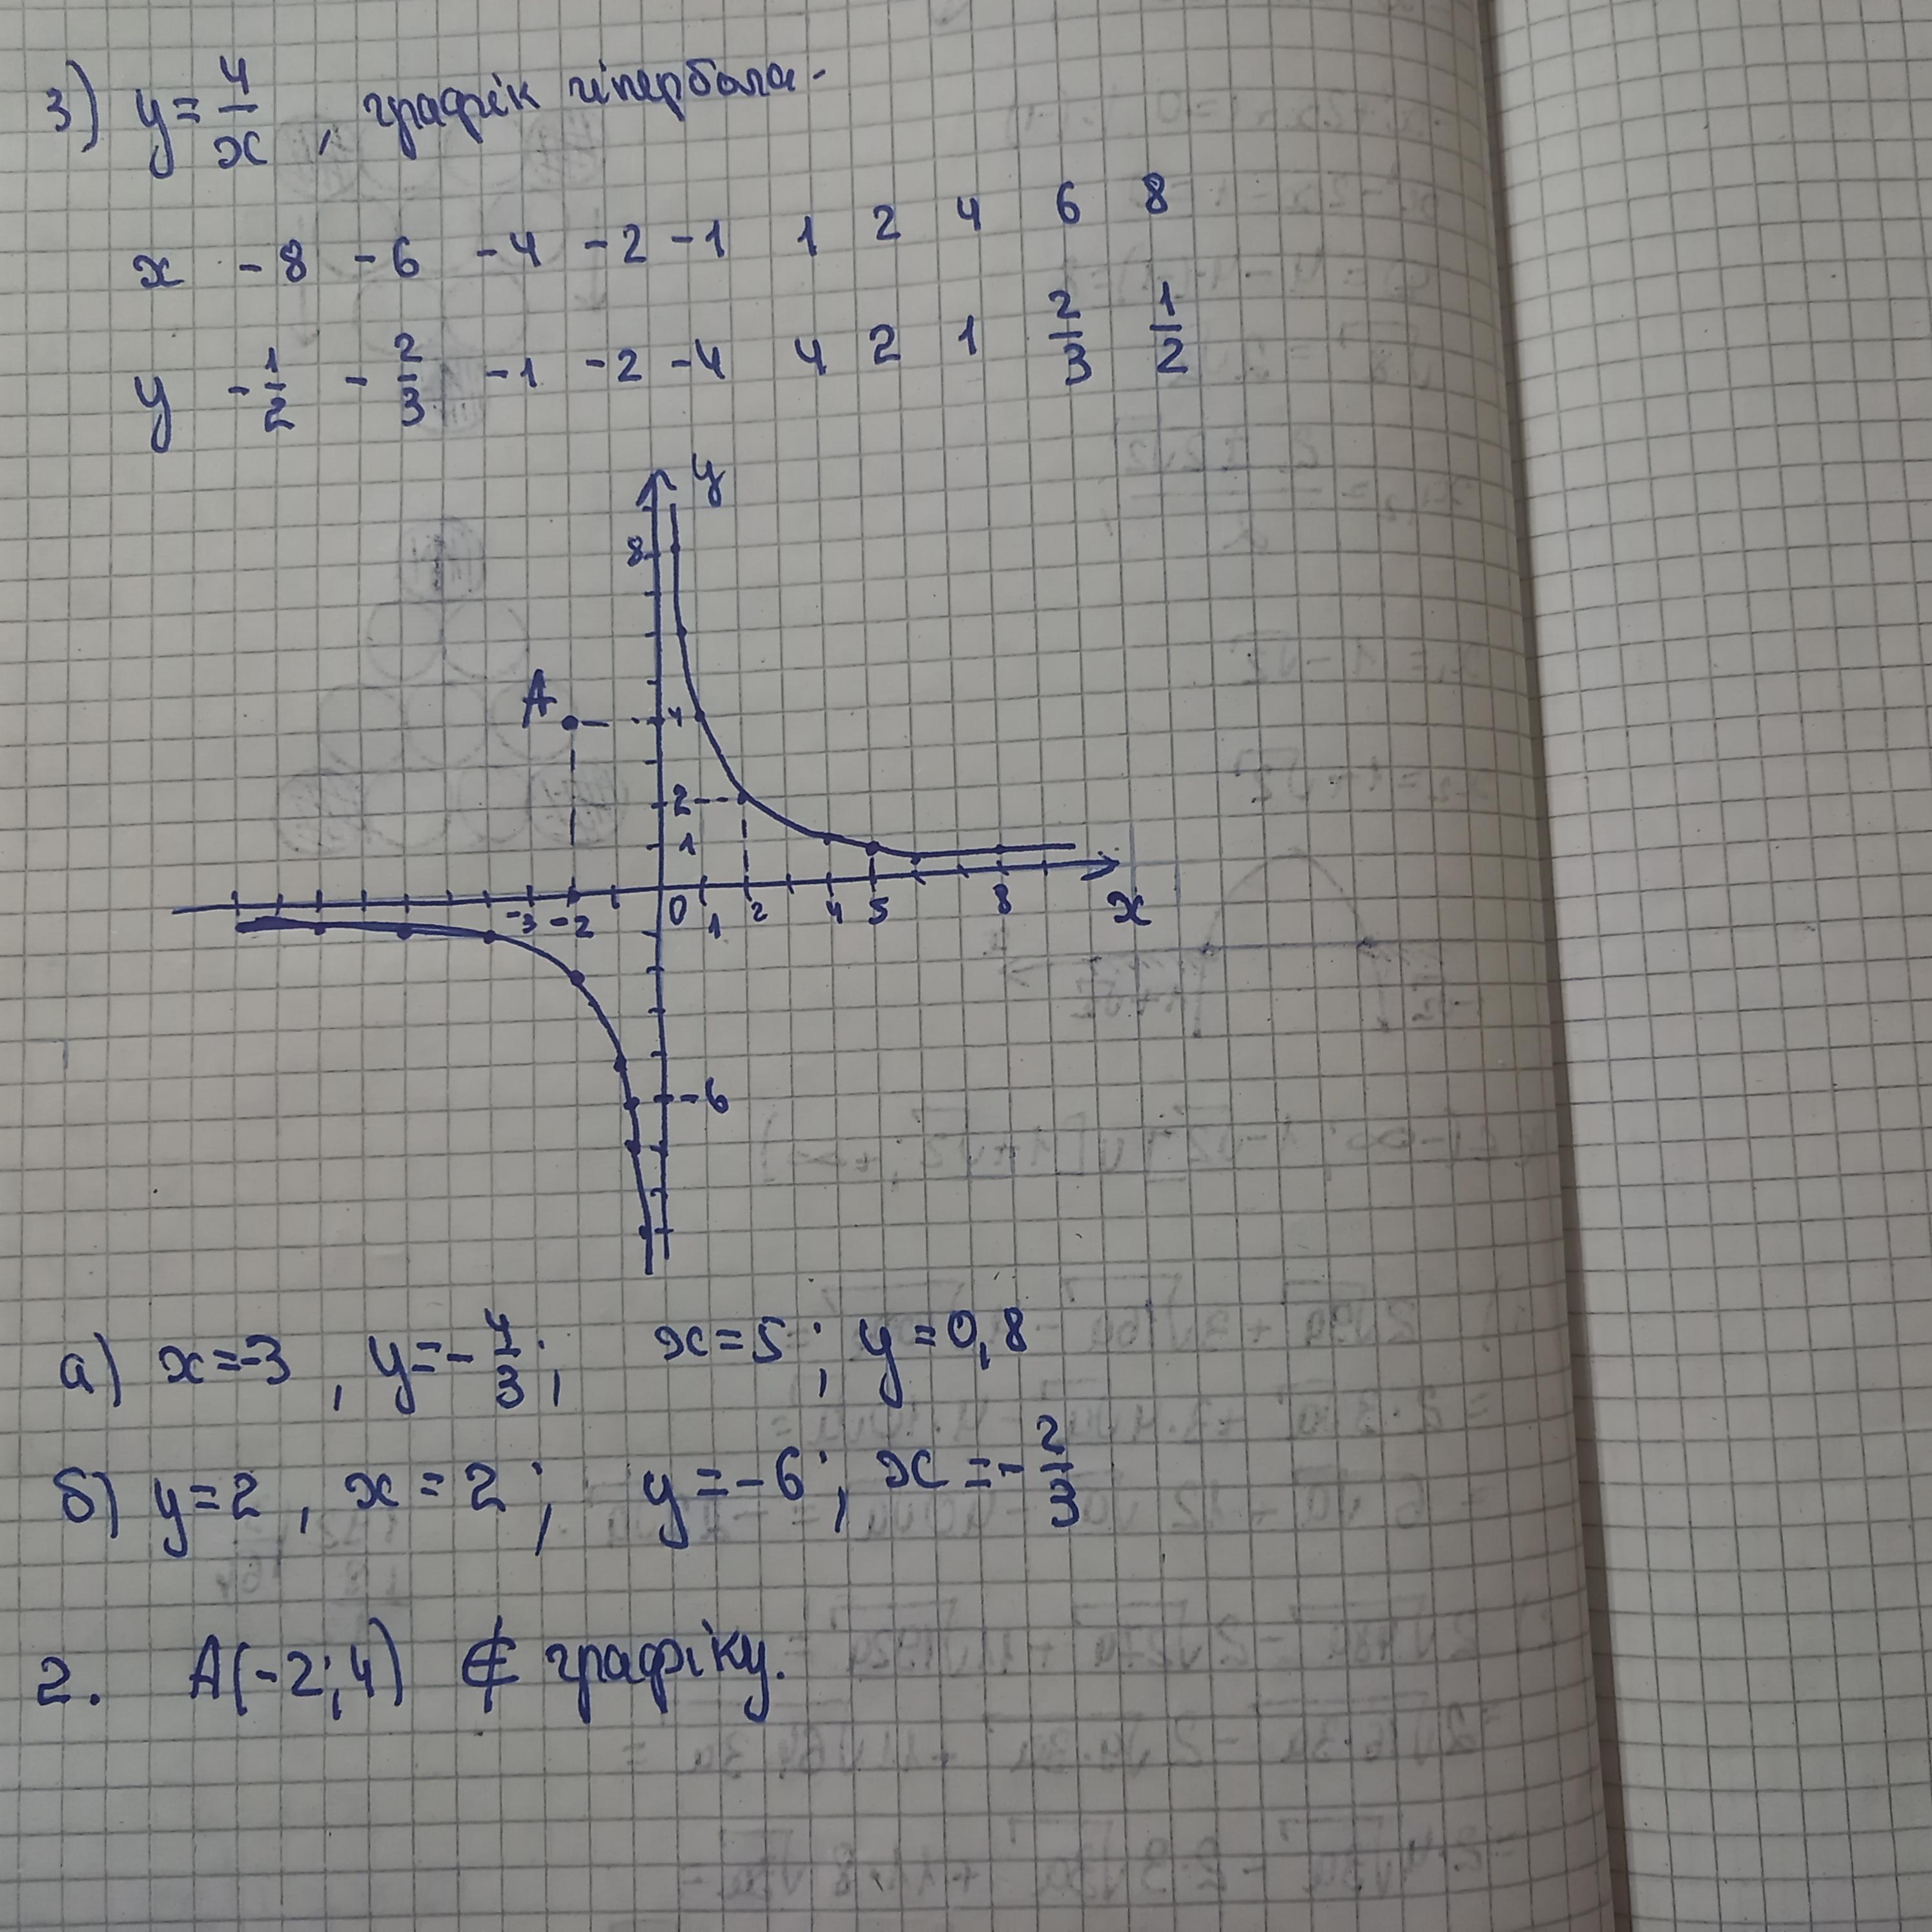 3) y = 4/x, графік гіпербола.
x -8 -6 -4 -2 -1 1 2 4 6 8
y -1/2 -2/3 -1 -2 -4 4 2 1 2/3 1/2
y
8
A
4
2
1
-3 -2 0 1 2 4 5 8 x
-6
а) x=-3, y=-4/3; x=5; y=0,8
б) y=2, x=2; y=-6; x=-2/3
2. A(-2;4) ∉ графіку.